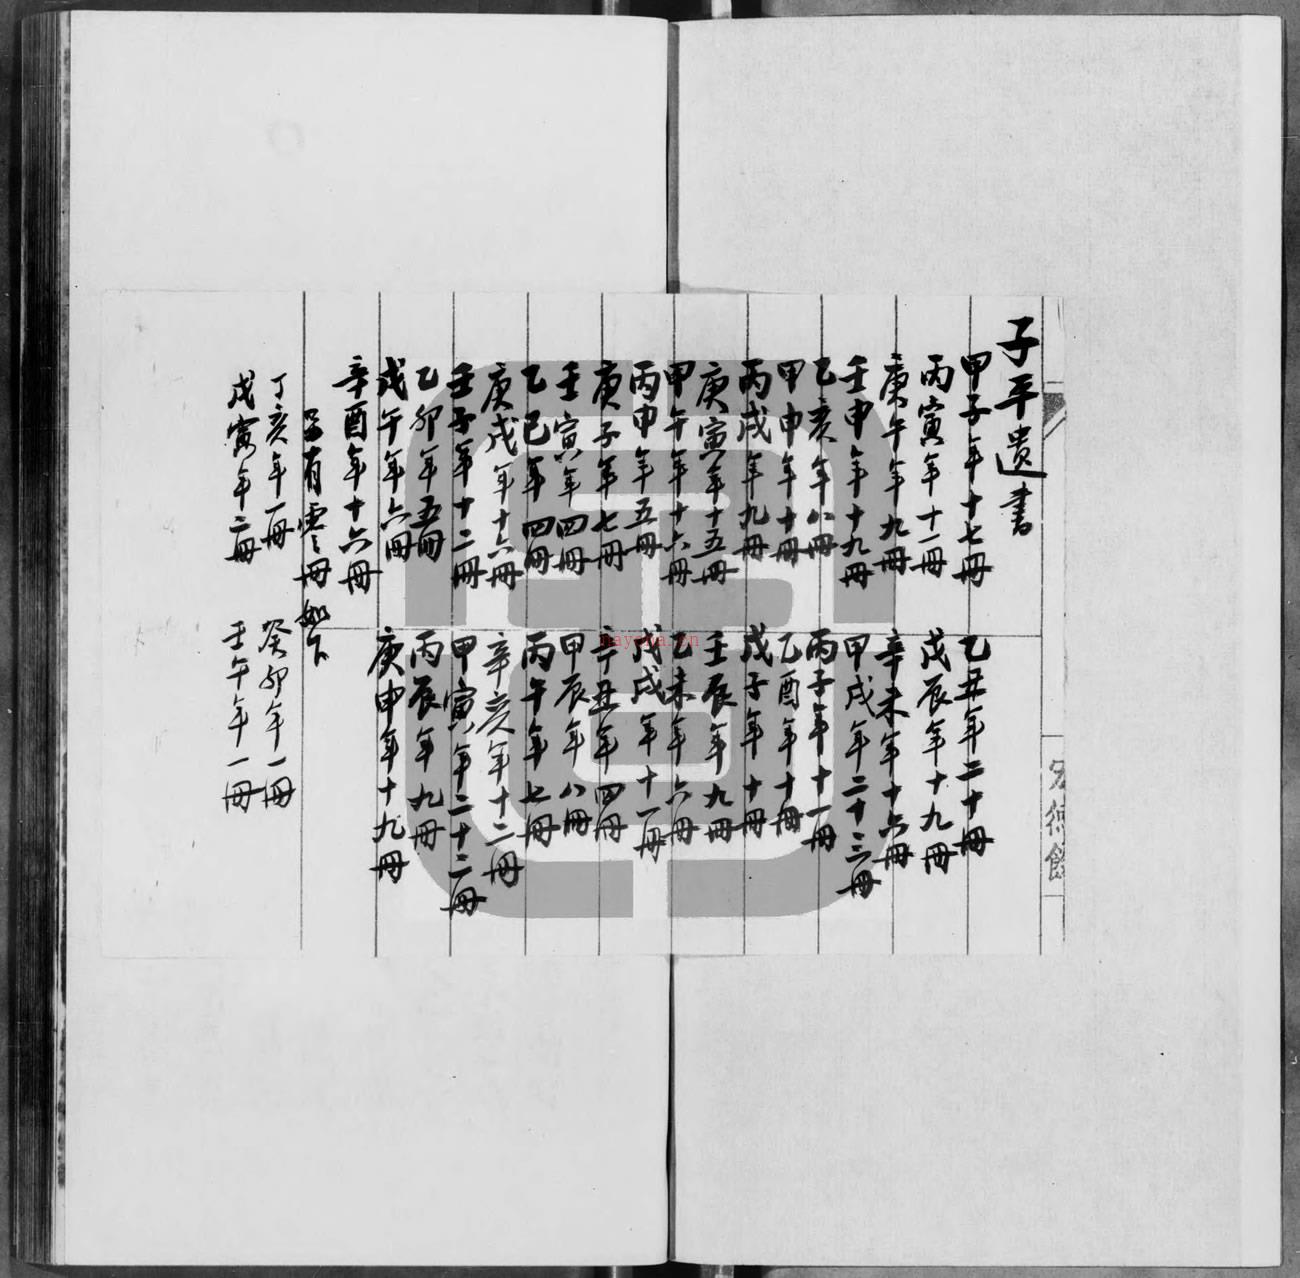 子平遺書
甲子年十七冊　乙丑年二十冊
丙寅年十一冊　戊辰年十九冊
庚午年九冊　辛未年十六冊
壬申年十九冊　甲戌年二十三冊
乙亥年八冊　丙子年十一冊
甲申年十冊　乙酉年十冊
丙戌年九冊　戊子年十冊
庚寅年十五冊　壬辰年九冊
甲午年十六冊　乙未年六冊
丙申年五冊　戊戌年十一冊
庚子年七冊　辛丑年四冊
壬寅年四冊　甲辰年八冊
乙巳年四冊　丙午年七冊
庚戌年十六冊　辛亥年十二冊
壬子年十二冊　甲寅年二十二冊
乙卯年五冊　丙辰年九冊
戊午年六冊　庚申年十九冊
辛酉年十六冊
另有零冊如下
丁亥年一冊　癸卯年一冊
戊寅年二冊　壬午年一冊
nayona.cn